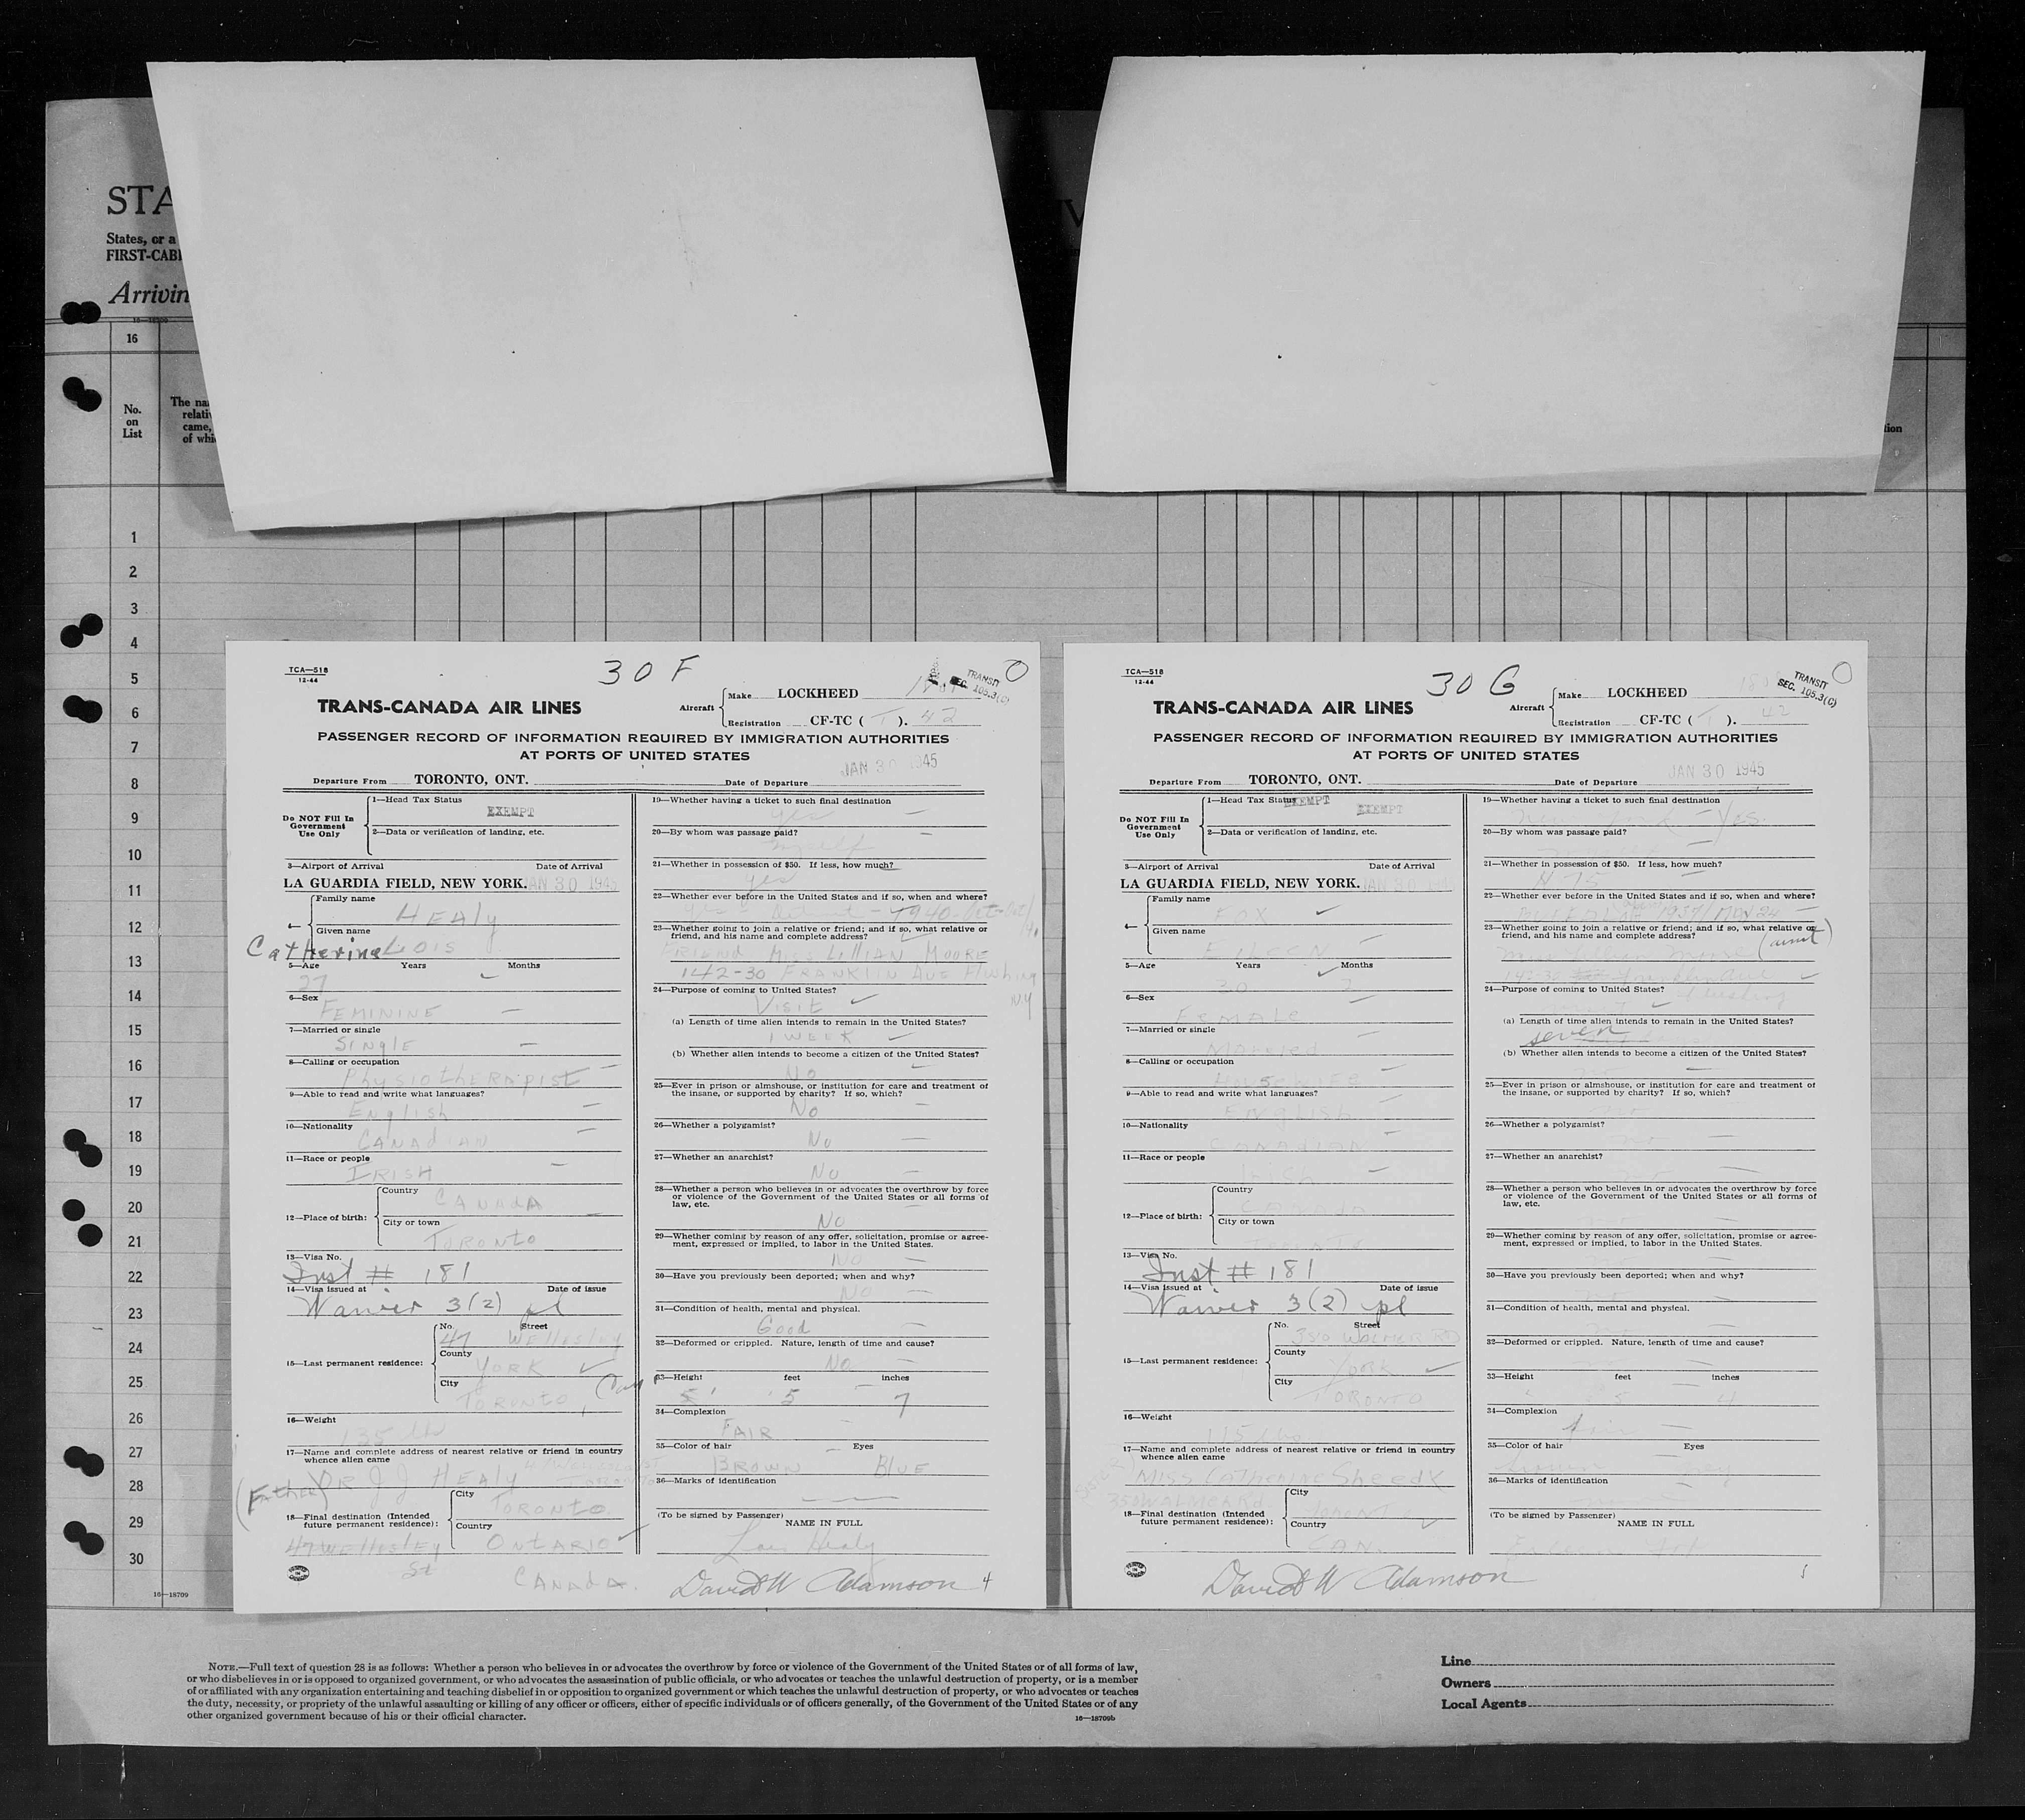 STA
States, or a
FIRST-CABI
Arrivin
16—18709
16
No.
on
List
The na
relati
came,
of whi
tion
1
2
3
4
5
6
7
8
9
10
11
12
13
14
15
16
17
18
19
20
21
22
23
24
25
26
27
28
29
30
16—18709
TCA—518
12-44
30 F
TRANSIT
SEC. 105.3(C)
TRANS-CANADA AIR LINES
Aircraft
Make LOCKHEED
Registration CF-TC ( T ). 42
PASSENGER RECORD OF INFORMATION REQUIRED BY IMMIGRATION AUTHORITIES
AT PORTS OF UNITED STATES
JAN 30 1945
Departure From TORONTO, ONT. Date of Departure
Do NOT Fill In
Government
Use Only
1—Head Tax Status
EXEMPT
2—Data or verification of landing, etc.
3—Airport of Arrival Date of Arrival
LA GUARDIA FIELD, NEW YORK. JAN 30 1945
4—
Family name
HEALY
Given name
Catherine LOIS
5—Age Years Months
27
6—Sex
FEMININE
7—Married or single
SINGLE
8—Calling or occupation
PHYSIOTHERAPIST
9—Able to read and write what languages?
English
10—Nationality
CANADIAN
11—Race or people
IRISH
12—Place of birth:
Country
CANADA
City or town
TORONTO
13—Visa No.
Inst # 181
14—Visa issued at Date of issue
Waiver 3(2) pl
15—Last permanent residence:
No. Street
47 Wellesley
County
YORK
City
TORONTO
16—Weight
135 lb
17—Name and complete address of nearest relative or friend in country
whence alien came
(Father) DR J J HEALY
18—Final destination (Intended
future permanent residence):
City
TORONTO
Country
47 Wellesley St ONTARIO
CANADA.
19—Whether having a ticket to such final destination
yes
20—By whom was passage paid?
myself
21—Whether in possession of $50. If less, how much?
yes
22—Whether ever before in the United States and if so, when and where?
1940
23—Whether going to join a relative or friend; and if so, what relative or
friend, and his name and complete address?
FRIEND MISS LILLIAN MOORE
142-30 FRANKLIN AVE Flushing
N.Y
24—Purpose of coming to United States?
VISIT
(a) Length of time alien intends to remain in the United States?
1 WEEK
(b) Whether alien intends to become a citizen of the United States?
No
25—Ever in prison or almshouse, or institution for care and treatment of
the insane, or supported by charity? If so, which?
No
26—Whether a polygamist?
No
27—Whether an anarchist?
No
28—Whether a person who believes in or advocates the overthrow by force
or violence of the Government of the United States or all forms of
law, etc.
No
29—Whether coming by reason of any offer, solicitation, promise or agree-
ment, expressed or implied, to labor in the United States.
No
30—Have you previously been deported; when and why?
No
31—Condition of health, mental and physical.
Good
32—Deformed or crippled. Nature, length of time and cause?
No
33—Height feet inches
5 7
34—Complexion
FAIR
35—Color of hair Eyes
BROWN BLUE
36—Marks of identification
(To be signed by Passenger)
NAME IN FULL
Lois Healy
David W Adamson 4
TCA—518
12-44
30 G
TRANSIT
SEC. 105.3(C)
TRANS-CANADA AIR LINES
Aircraft
Make LOCKHEED
Registration CF-TC ( T ). 42
PASSENGER RECORD OF INFORMATION REQUIRED BY IMMIGRATION AUTHORITIES
AT PORTS OF UNITED STATES
JAN 30 1945
Departure From TORONTO, ONT. Date of Departure
Do NOT Fill In
Government
Use Only
1—Head Tax Status
EXEMPT EXEMPT
2—Data or verification of landing, etc.
3—Airport of Arrival Date of Arrival
LA GUARDIA FIELD, NEW YORK. JAN 30 194
4—
Family name
FOX
Given name
EILEEN
5—Age Years Months
30 2
6—Sex
FEMALE
7—Married or single
Married
8—Calling or occupation
HOUSEWIFE
9—Able to read and write what languages?
English
10—Nationality
CANADIAN
11—Race or people
Irish
12—Place of birth:
Country
CANADA
City or town
13—Visa No.
Inst # 181
14—Visa issued at Date of issue
Waiver 3(2) pl
15—Last permanent residence:
No. Street
350 WALMER RD
County
YORK
City
TORONTO
16—Weight
115 lbs
17—Name and complete address of nearest relative or friend in country
whence alien came
MISS CATHERINE Sheedy
350 WALMER Rd
18—Final destination (Intended
future permanent residence):
City
TORONTO
Country
CAN.
19—Whether having a ticket to such final destination
New York - Yes.
20—By whom was passage paid?
21—Whether in possession of $50. If less, how much?
75
22—Whether ever before in the United States and if so, when and where?
1937
23—Whether going to join a relative or friend; and if so, what relative or
friend, and his name and complete address?
(aunt)
Flushing
24—Purpose of coming to United States?
(a) Length of time alien intends to remain in the United States?
seven
(b) Whether alien intends to become a citizen of the United States?
no
25—Ever in prison or almshouse, or institution for care and treatment of
the insane, or supported by charity? If so, which?
no
26—Whether a polygamist?
no
27—Whether an anarchist?
no
28—Whether a person who believes in or advocates the overthrow by force
or violence of the Government of the United States or all forms of
law, etc.
29—Whether coming by reason of any offer, solicitation, promise or agree-
ment, expressed or implied, to labor in the United States.
30—Have you previously been deported; when and why?
31—Condition of health, mental and physical.
32—Deformed or crippled. Nature, length of time and cause?
33—Height feet inches
5 4
34—Complexion
fair
35—Color of hair Eyes
brown grey
36—Marks of identification
(To be signed by Passenger)
NAME IN FULL
Eileen Fox
David W Adamson
5
NOTE.—Full text of question 28 is as follows: Whether a person who believes in or advocates the overthrow by force or violence of the Government of the United States or of all forms of law,
or who disbelieves in or is opposed to organized government, or who advocates the assassination of public officials, or who advocates or teaches the unlawful destruction of property, or is a member
of or affiliated with any organization entertaining and teaching disbelief in or opposition to organized government or which teaches the unlawful destruction of property, or who advocates or teaches
the duty, necessity, or propriety of the unlawful assaulting or killing of any officer or officers, either of specific individuals or of officers generally, of the Government of the United States or of any
other organized government because of his or their official character.
16—18709b
Line
Owners
Local Agents